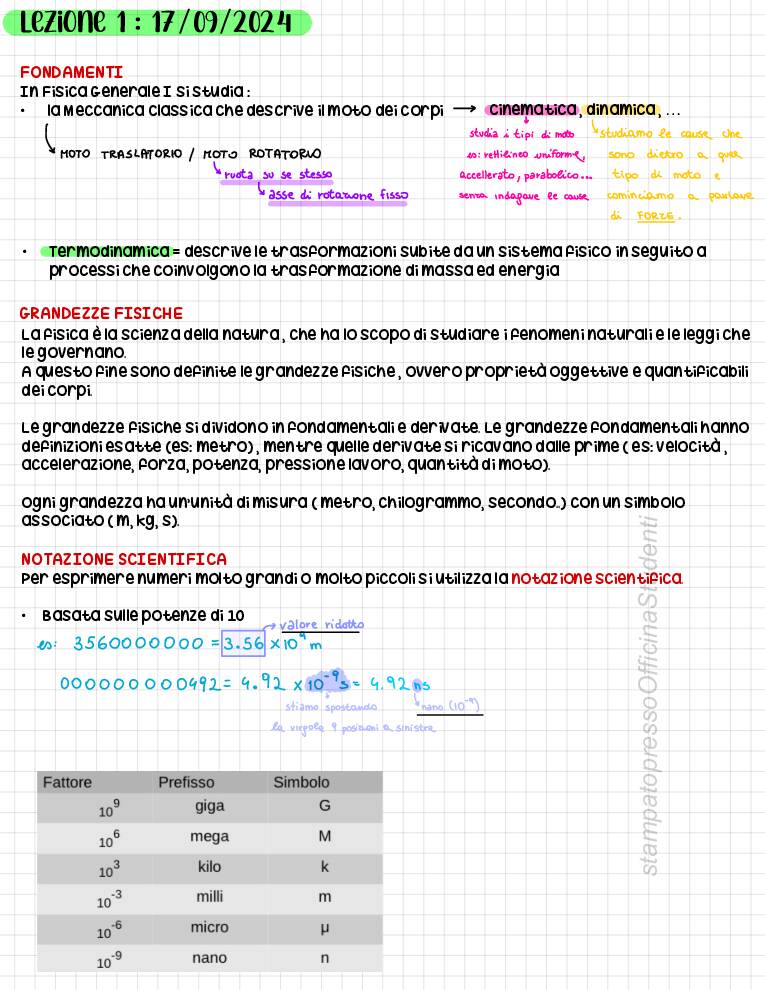 Lezione 1 : 17/09/2024
FONDAMENTI
In Fisica Generale I si studia :
• la Meccanica classica che descrive il moto dei corpi → cinematica, dinamica, ...
studia i tipi di moto
es: rettilineo uniforme,
accellerato, parabolico...
senza indagare le cause
studiamo le cause che
sono dietro a quel
tipo di moto e
cominciamo a parlare
di FORZE.
MOTO TRASLATORIO / MOTO ROTATORIO
ruota su se stesso
asse di rotazione fisso
• Termodinamica = descrive le trasformazioni subite da un sistema fisico in seguito a
processi che coinvolgono la trasformazione di massa ed energia
GRANDEZZE FISICHE
La fisica è la scienza della natura, che ha lo scopo di studiare i fenomeni naturali e le leggi che
le governano.
A questo fine sono definite le grandezze fisiche, ovvero proprietà oggettive e quantificabili
dei corpi.
Le grandezze fisiche si dividono in fondamentali e derivate. Le grandezze fondamentali hanno
definizioni esatte (es: metro), mentre quelle derivate si ricavano dalle prime (es: velocità,
accelerazione, forza, potenza, pressione lavoro, quantità di moto).
Ogni grandezza ha un'unità di misura (metro, chilogrammo, secondo..) con un simbolo
associato (m, kg, s).
NOTAZIONE SCIENTIFICA
Per esprimere numeri molto grandi o molto piccoli si utilizza la notazione scientifica
• Basata sulle potenze di 10
valore ridotto
es: 3560000000 = 3.56 × 10⁹ m
000000000492 = 4.92 × 10⁻⁹ s = 4.92 ns
stiamo spostando
la virgola 9 posizioni a sinistra
nano (10⁻⁹)
Fattore Prefisso Simbolo
10⁹ giga G
10⁶ mega M
10³ kilo k
10⁻³ milli m
10⁻⁶ micro μ
10⁻⁹ nano n
stampatopressoOfficinaStudenti